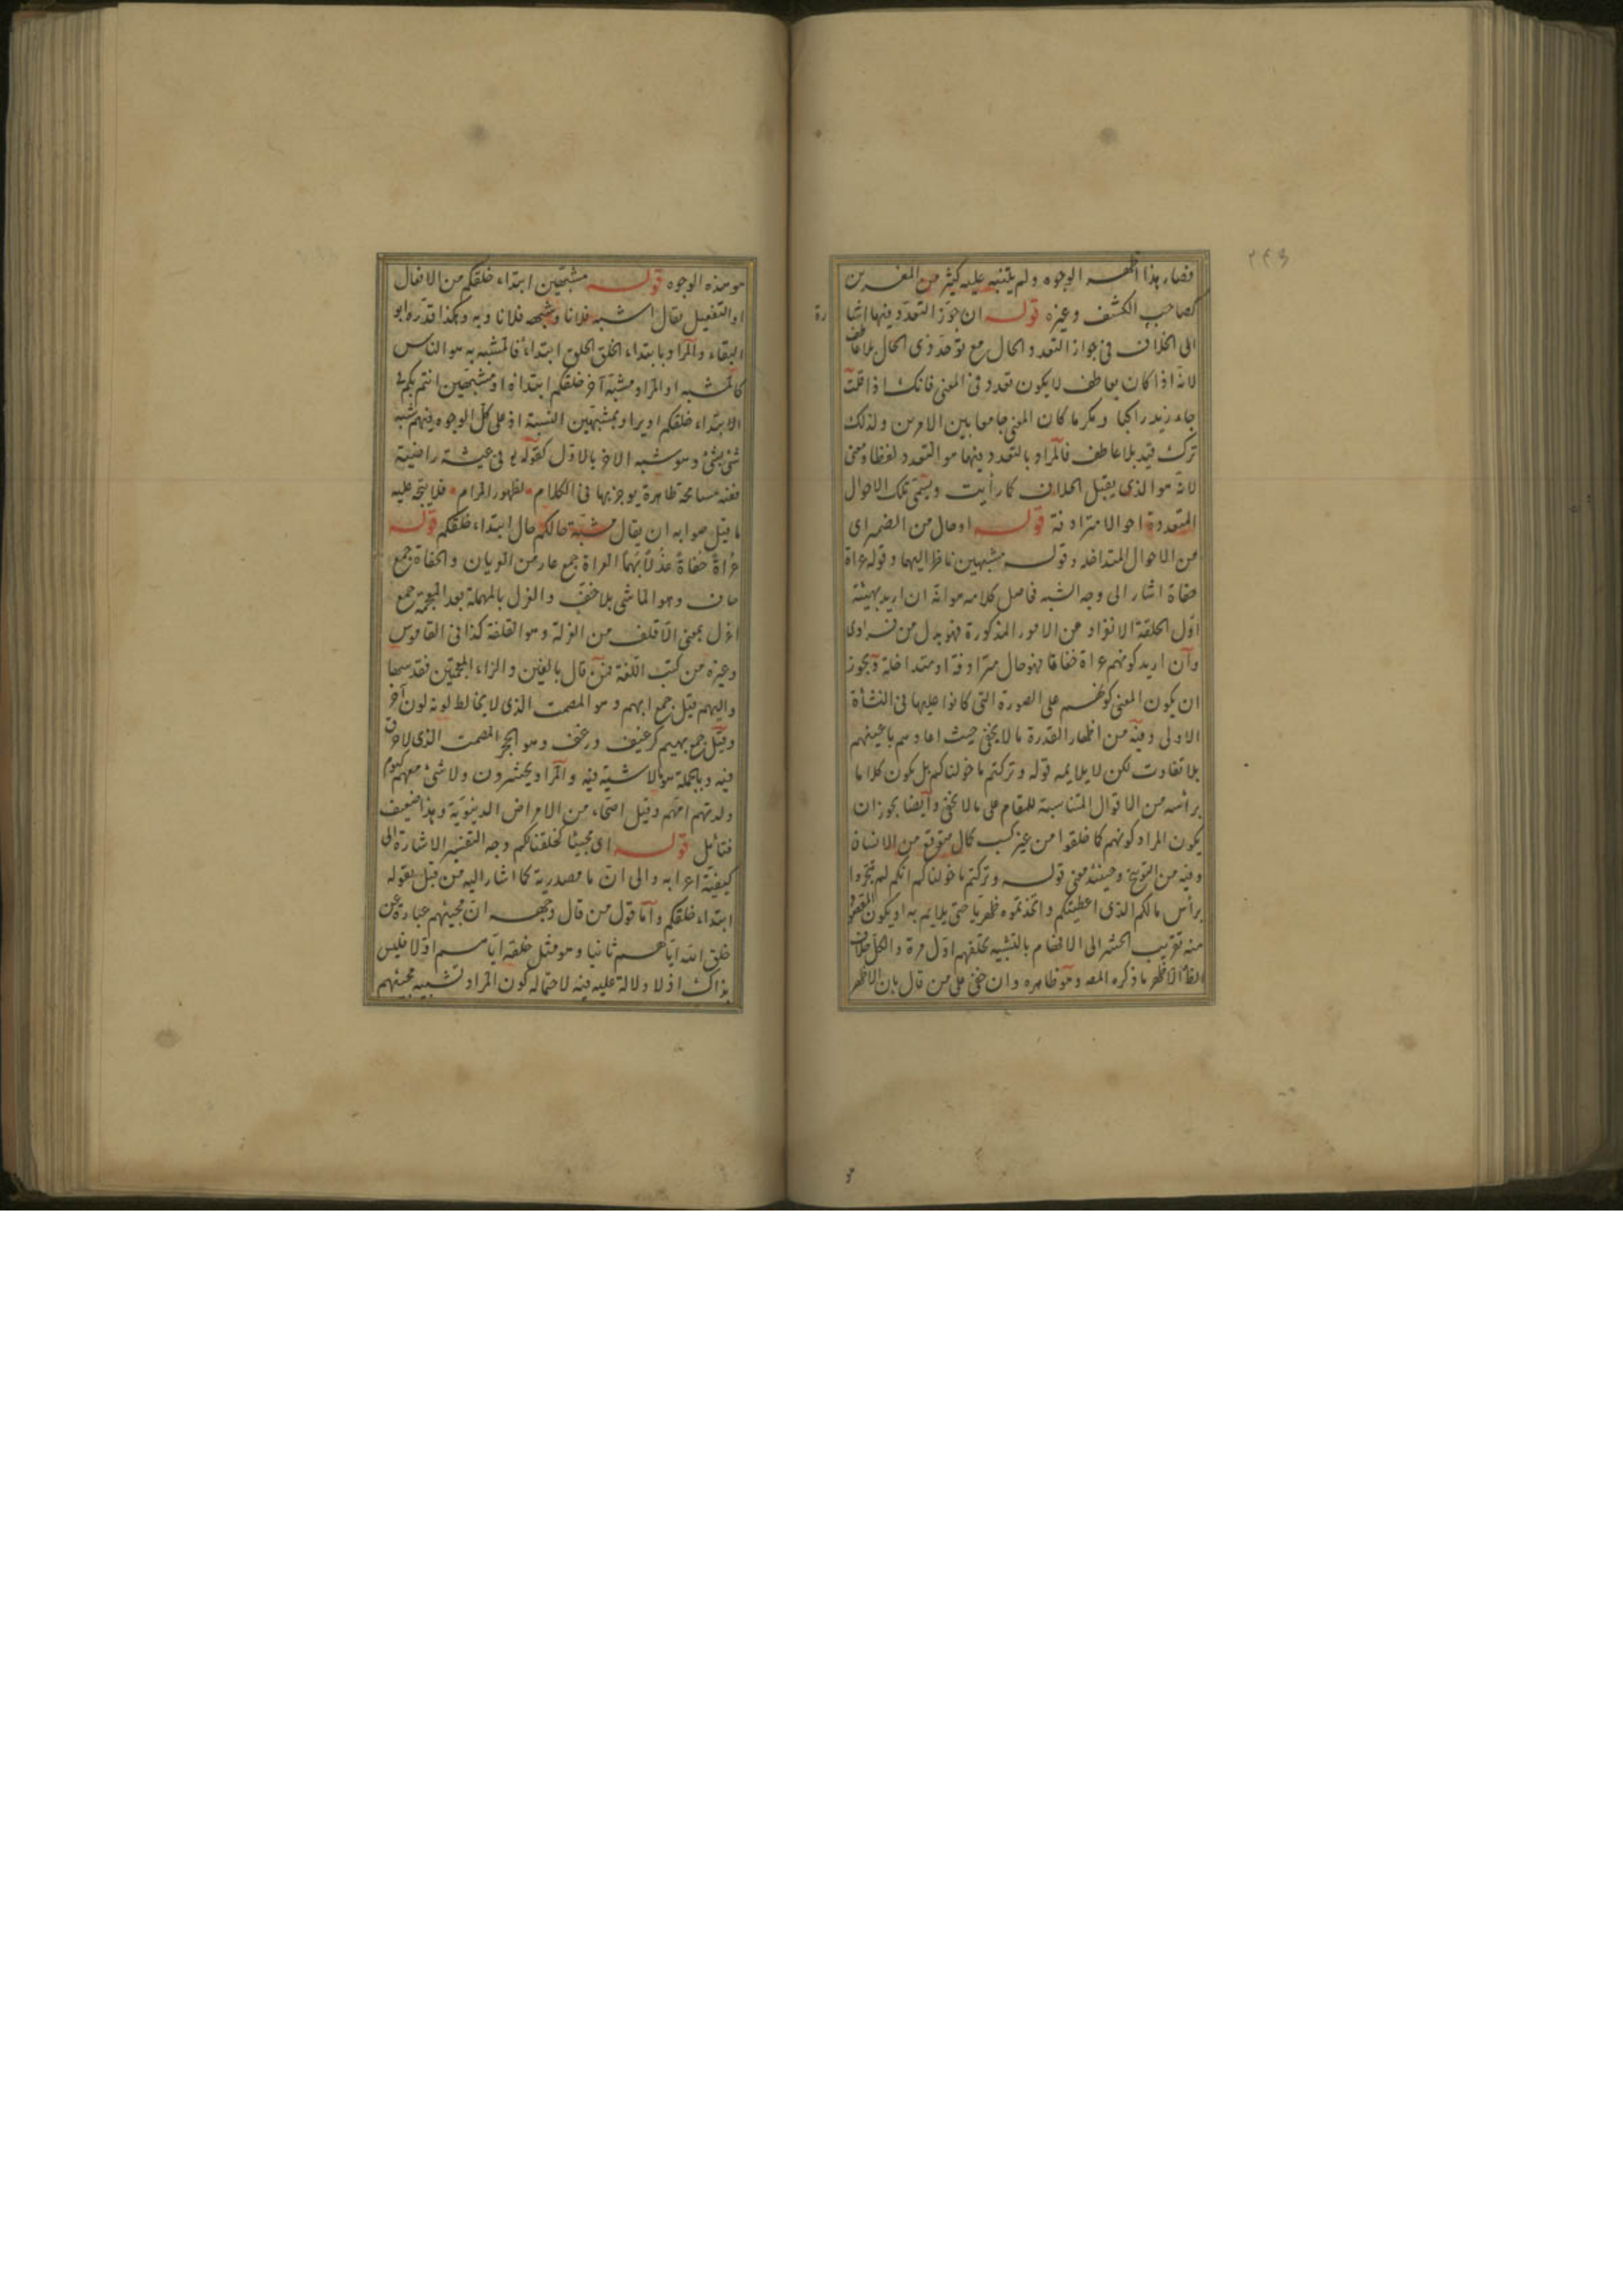 ٢٤٣
فصار هذا اظهر الوجوه ولم يتنبه عليه كثير من المفسرين
كصاحب الكشف وغيره قوله ان جوز التعدد فيها اشا
رة
الى الخلاف في جواز التعدد والحال مع توحد ذي الحال بلا عاطف
لانه اذا كان بعاطف لا يكون تعدد في المعنى فانك اذا قلت
جاء زيد راكبا ومكرما كان المعنى جامعا بين الامرين ولذلك
ترك قيد بلا عاطف فالمراد بالتعدد فيها هو التعدد لفظا ومعنى
لانه هو الذي يقبل الخلاف كما رأيت ويسمى تلك الاحوال
المتعددة احوالا مترادفة قوله او حال من الضمير اى
من الاحوال المتداخلة وقوله مشبهين ناظر اليهما وقوله عراة
حفاة اشار الى وجه الشبه فاصل كلامه هو انه ان اريد بهيئة
اول الخلقة الانفراد عن الامور المذكورة فهو بدل من فرادى
وان اريد كونهم عراة حفاة فهو حال مترادفة او متداخلة ويجوز
ان يكون المعنى كونهم على الصورة التي كانوا عليها في النشأة
الاولى وفيه من اظهار القدرة ما لا يخفى حيث اعادهم باعينهم
بلا تفاوت لكن لا يلايمه قوله وتركتم ما خولناكم بل يكون كلاما
برأسه من الاقوال المتناسبة للمقام على ما لا يخفى وايضا يجوز ان
يكون المراد كونهم كما خلقوا من غير كسب كمال متوقع من الانسان
وفيه من التوبيخ وحينئذ معنى قوله وتركتم ما خولناكم انكم لم تتجروا
برأس مالكم الذي اعطيتكم واتخذتموه ظهريا حتى يلايم به او يكون المقصود
منه تقريب الحشر الى الافهام بالتشبيه بخلقهم اول مرة والكل خلاف
الظ الاظهر ما ذكره المصه وهو ظاهره وان خفى على من قال بان الاظهر
هو
هو هذه الوجوه قوله مشبهين ابتداء خلقكم من الافعال
او التفعيل يقال اشبه فلانا وشبهه فلانا وبه وهكذا قدره ابو
البقاء والمراد بابتداء الخلق الخلق ابتداء فالمشبه به هو الناس
كالمشبه او المراد مشبه آخر خلقكم ابتداءه او مشبهين انتم بكم في
الابتداء خلقكم او يراد بمشبهين النسبة اذ على كل الوجوه فيهم شبه
شئ بشئ وهو شبه الاخر بالاول كقوله تع في عيشة راضية
ففيه مسامحة ظاهرة يوجز بها في الكلام لظهور المرام فلا يتجه عليه
ما قيل صوابه ان يقال مشبهة حالكم حال ابتداء خلقكم قوله
عُراةً حُفاةً غُرْلاً بُهماً العراة جمع عار من العريان والحفاة جمع
حاف وهو الماشى بلا خف والغرل بالمهملة بعد المعجمة جمع
اغرل بمعنى الاقلف من الغرلة وهو القلفة كذا في القاموس
وغيره من كتب اللغة فمن قال بالغين والزاء المعجمتين فقد سها
والبهم قيل جمع ابهم وهو المصمت الذي لا يخالط لونه لون آخر
وقيل جمع بهيم كرغيف ورغف وهو الحجر المصمت الذي لا خرق
فيه وبالجملة هو ما لا شية فيه والمراد يحشرون ولا شئ معهم كيوم
ولدتهم امهم وقيل اصحاء من الامراض الدنيوية وهذا ضعيف
فتأمل قوله اى مجيئا كخلقنا لكم وجه التفسير الاشارة الى
كيفية اعرابه والى ان ما مصدرية كما اشار اليه من قبل بقوله
ابتداء خلقكم واما قول من قال وجهه ان مجيئهم عبارة عن
خلق الله اياهم ثانيا وهو مثل خلقه اياهم اولا فليس
بذاك اذ لا دلالة عليه فيه لاحتماله كون المراد تشبيه مجيئهم